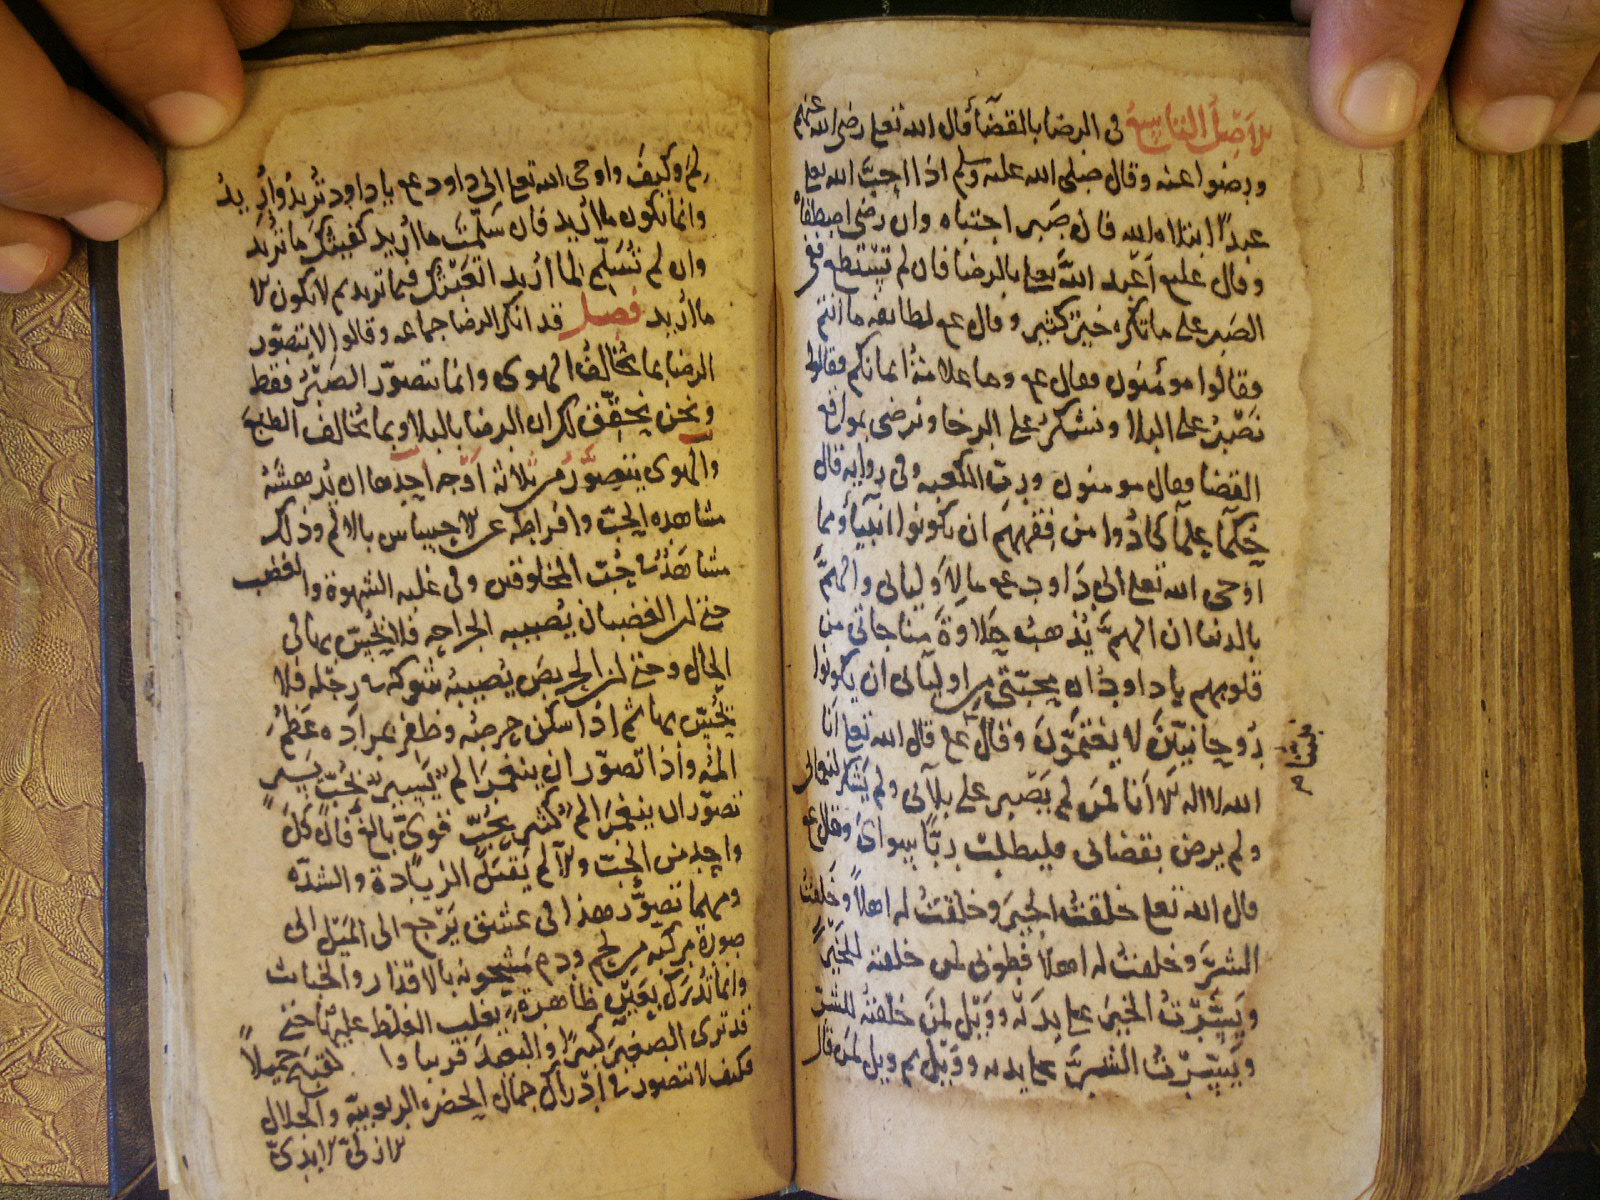 الاصل التاسع في الرضا بالقضا قال الله تعلى رضي الله عنهم
ورضوا عنه وقال صلى الله عليه وسلم اذا احب الله تعلى
عبدًا ابتلاه الله فان صبر اجتباه وان رضي اصطفاه
وقال عليه اعبد الله تعلى بالرضا فان لم تستطع ففي
الصبر على ما تكره خير كثير وقال عم لطايفه ما انتم
فقالوا مؤمنون فقال عم وما علامة ايمانكم فقالوا
نصبر على البلا ونشكر على الرخا ونرضى بمواقع
القضا فقال مومنون ورب الكعبه وفي روايه قال
حكما علما كادوا من فقههم ان يكونوا انبيأ ومما
اوحى الله تعلى الى داود عم ما لأوليائي والهم
بالدنيا ان الهم يذهب حلاوة مناجاتي من
قلوبهم يا داود ان محبتي من اوليائي ان يكونوا
روحانيين لا يغتمون وقال عم قال الله تعلى انا
الله لا اله الا انا فمن لم يصبر على بلائي ولم يشكر نعمائي
ولم يرض بقضائي فليطلب ربًا سوائ وقال عم
قال الله تعلى خلقت الخير وخلقت له اهلاً وخلقت
الشر وخلقت له اهلا فطوبى لمن خلقته للخير
ويسرت الخير على يديه وويل لمن خلقته للشر
ويسرت الشر على يديه وويل ثم ويل لمن قال
لم وكيف واوحى الله تعلى الى داود عم يا داود تريد واريد
وانما يكون ما اريد فان سلمت ما اريد كفيتك ما تريد
وان لم تسلم لما اريد اتعبتك فيما تريد ثم لا يكون الا
ما اريد فصل قد انكر الرضا جماعه وقالوا لا يتصور
الرضا بما يخالف الهوى وانما يتصور الصبر فقط
ونحن نحقق لك ان الرضا بالبلا وبما يخالف الطبع
والهوى يتصور من ثلاثه اوجه احدها ان يدهشه
مشاهده الحب وافراطه عن الاحساس بالالم وذلك
مشاهد في حب المخلوقين وفي غلبه الشهوة والغضب
حتى ان الغضبان يصيبه الجراحه فلا يحس بها في
الحال وحتى ان الحريص يصيبه شوكه في رجله فلا
يحس بها ثم اذا سكن حرصه وظفر بمراده عظم
المه وأذا تصور ان ينغمر الم يسير بحب يسير
تصور ان ينغمر الم كثير بحب قوي بالغ فان كل
واحد من الحب والالم يقبل الزيادة والشده
ومهما تصور هذا في عشق يرجع الى الميل الى
صورة مركبه من لحم ودم مشحونه بالاقذار والخبائث
وانما تدرك بعين ظاهرة يغلب الغلط عليها حتى
قد ترى الصغير كبيرًا والبعيد قريبا والقبيح جميلاً
فكيف لا يتصور في ادراك جمال الحضره الربوبية والجلال
الازلي الابدي